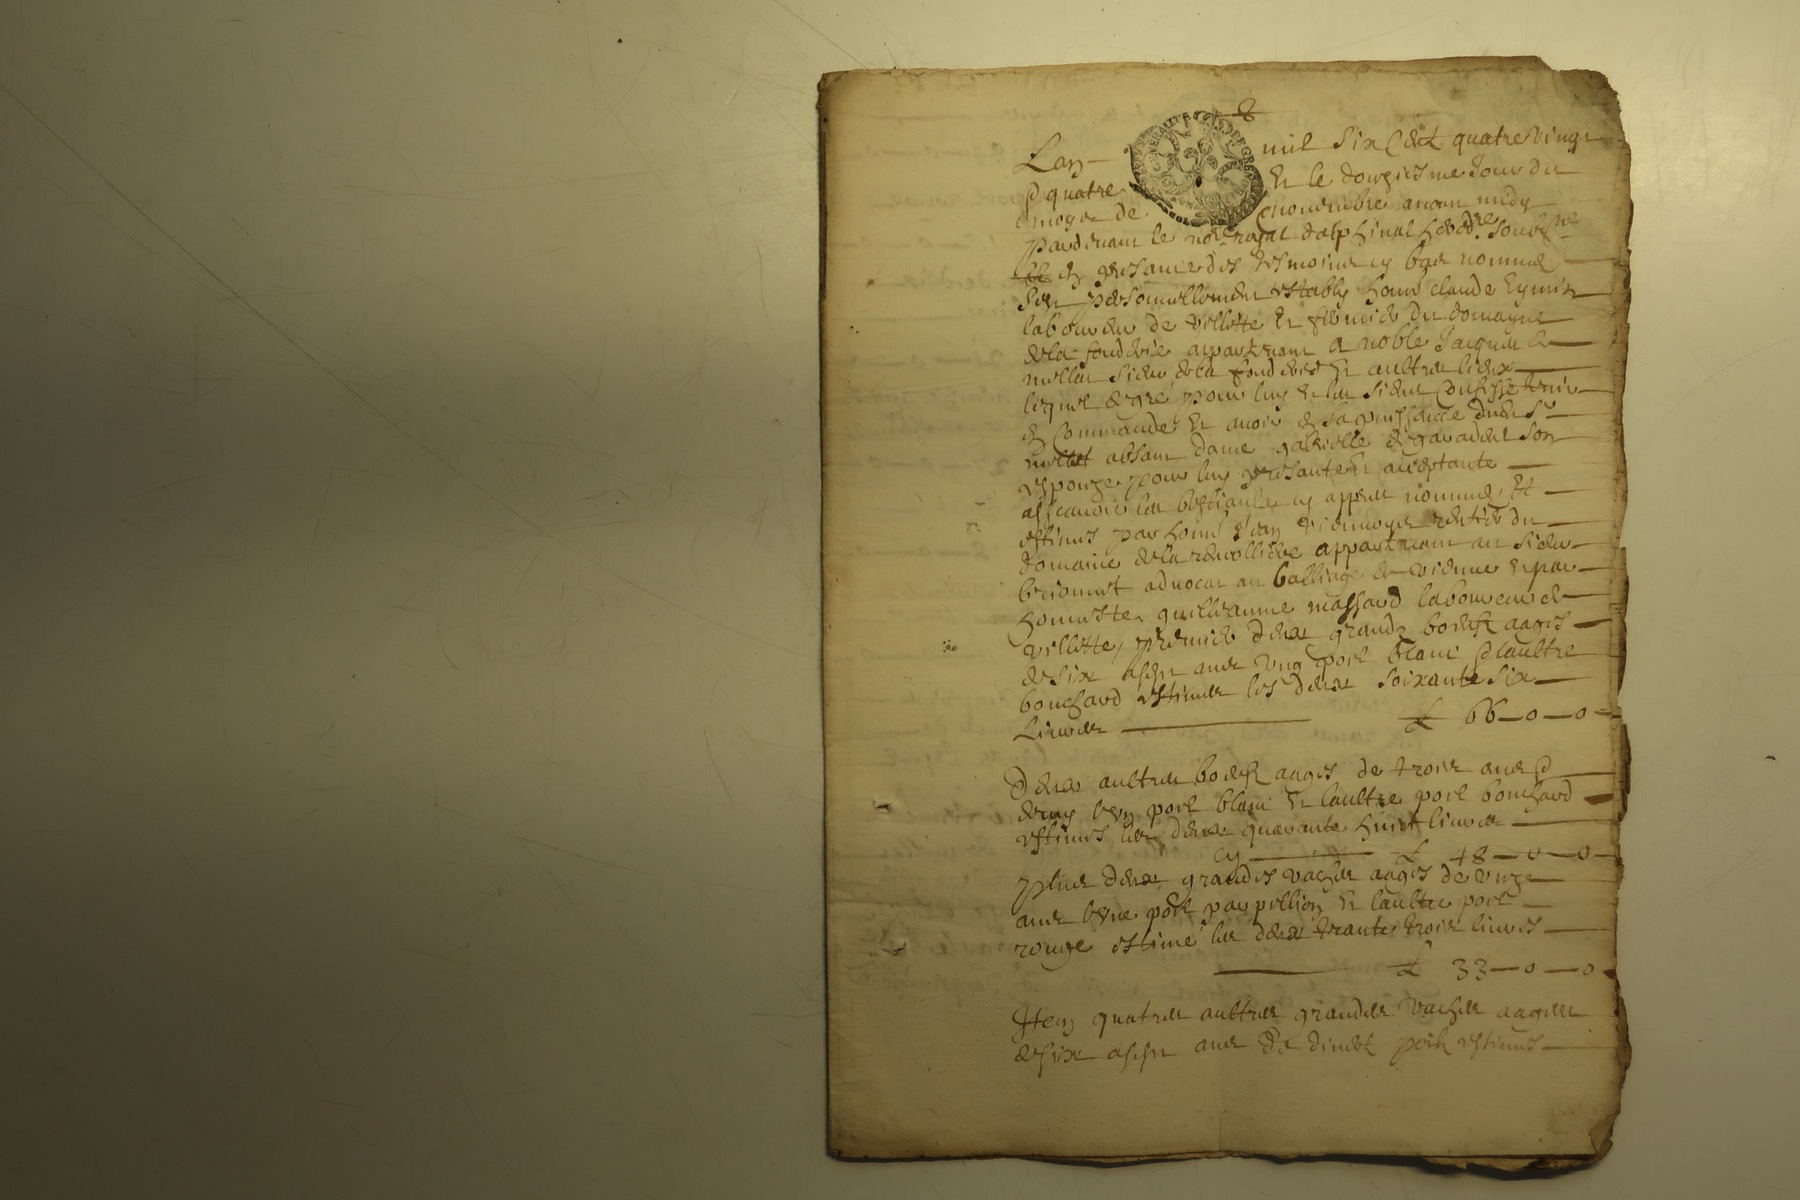 8
Lan mil six cent quatre vingt
& quatre Et le douziesme Jour du
moys de novembre avant midy
pardevant le no.re royal dalphinal hered.re soub.ne
et en presance des tesmoins cy bas nommes
sest personnellement estably honn claude Eymin
laboureur de villette Et fermier du domayne
dela fonderie appartenant a noble Jacques de
millat sieur dela fonderie Et aultres lieux
lequel de gré pour luy Et les siens Confesse tenir
en Commande Et avoir en sa puissance dudit Sr
millat absant dame gabrielle de gavadent son
espouze pour luy presante Et acceptante
assçavoir les bestiaulx cy appres nommes, Et
estimes par honn Jean viennoys rentier du
domaine dela revolliere appartenant au sieur
brionnet advocat au balliage de vienne Et par
honneste guilliaume massard laboureur de
villette, premier deux grands boeufz aages
de six a sept ans ung poil blanc & laultre
bouchard estimes les deux soixante six
Livres £ 66-0-0
Deux aultres boeufz aages de trois ans &
demy lung poil blanc Et laultre poil bouchard
estimes les deux quarante huict livres
cy £ 48-0-0
plus deux grandes vaches aages de unze
ans lune poil parpillion Et laultre poil
rouge estime les deux trante trois livres
£ 33-0-0
Item quatres aultres grandes vaches aagees
de six a sept ans de divers poilz estimes